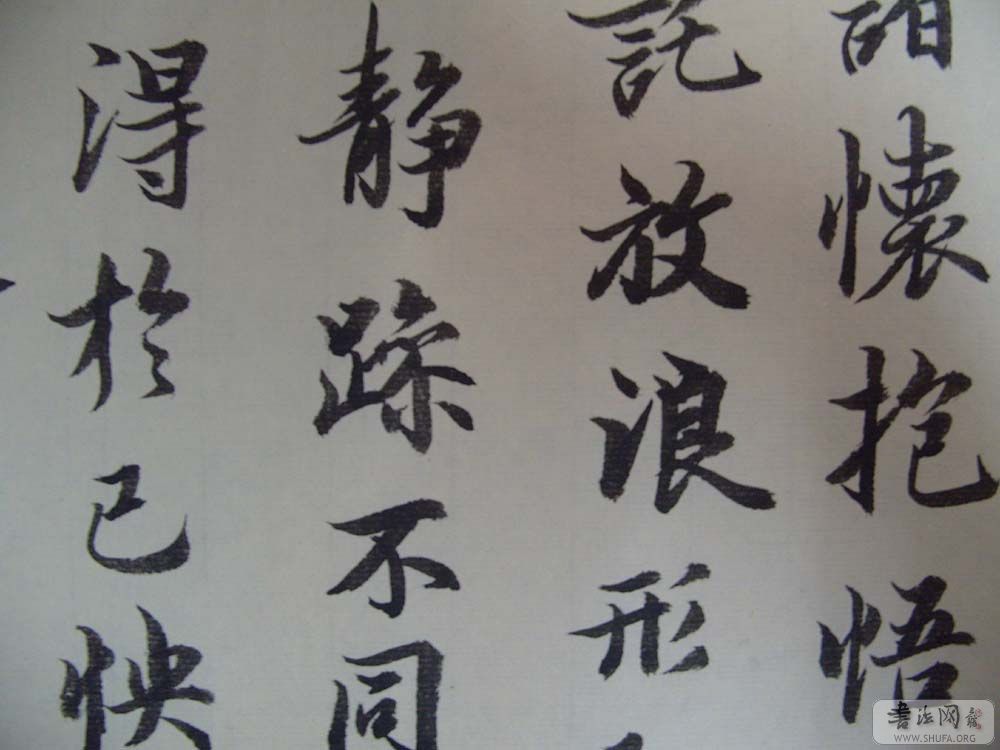 諸懷抱悟
託放浪形
静躁不同
得於己怏
书法网
WWW.SHUFA.ORG